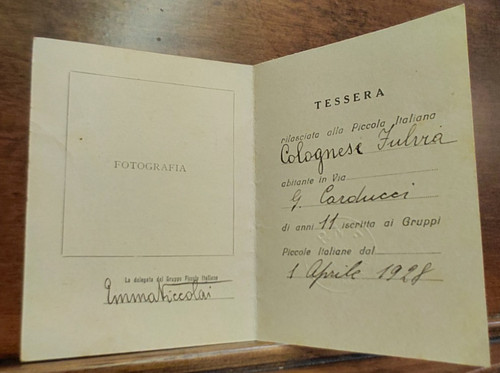 FOTOGRAFIA
La delegata del Gruppo Piccole Italiane
Emma Niccolai
TESSERA
rilasciata alla Piccola Italiana
Colognesi Fulvia
abitante in Via
G. Carducci
di anni 11 iscritta ai Gruppi
Piccole Italiane dal
1 Aprile 1928